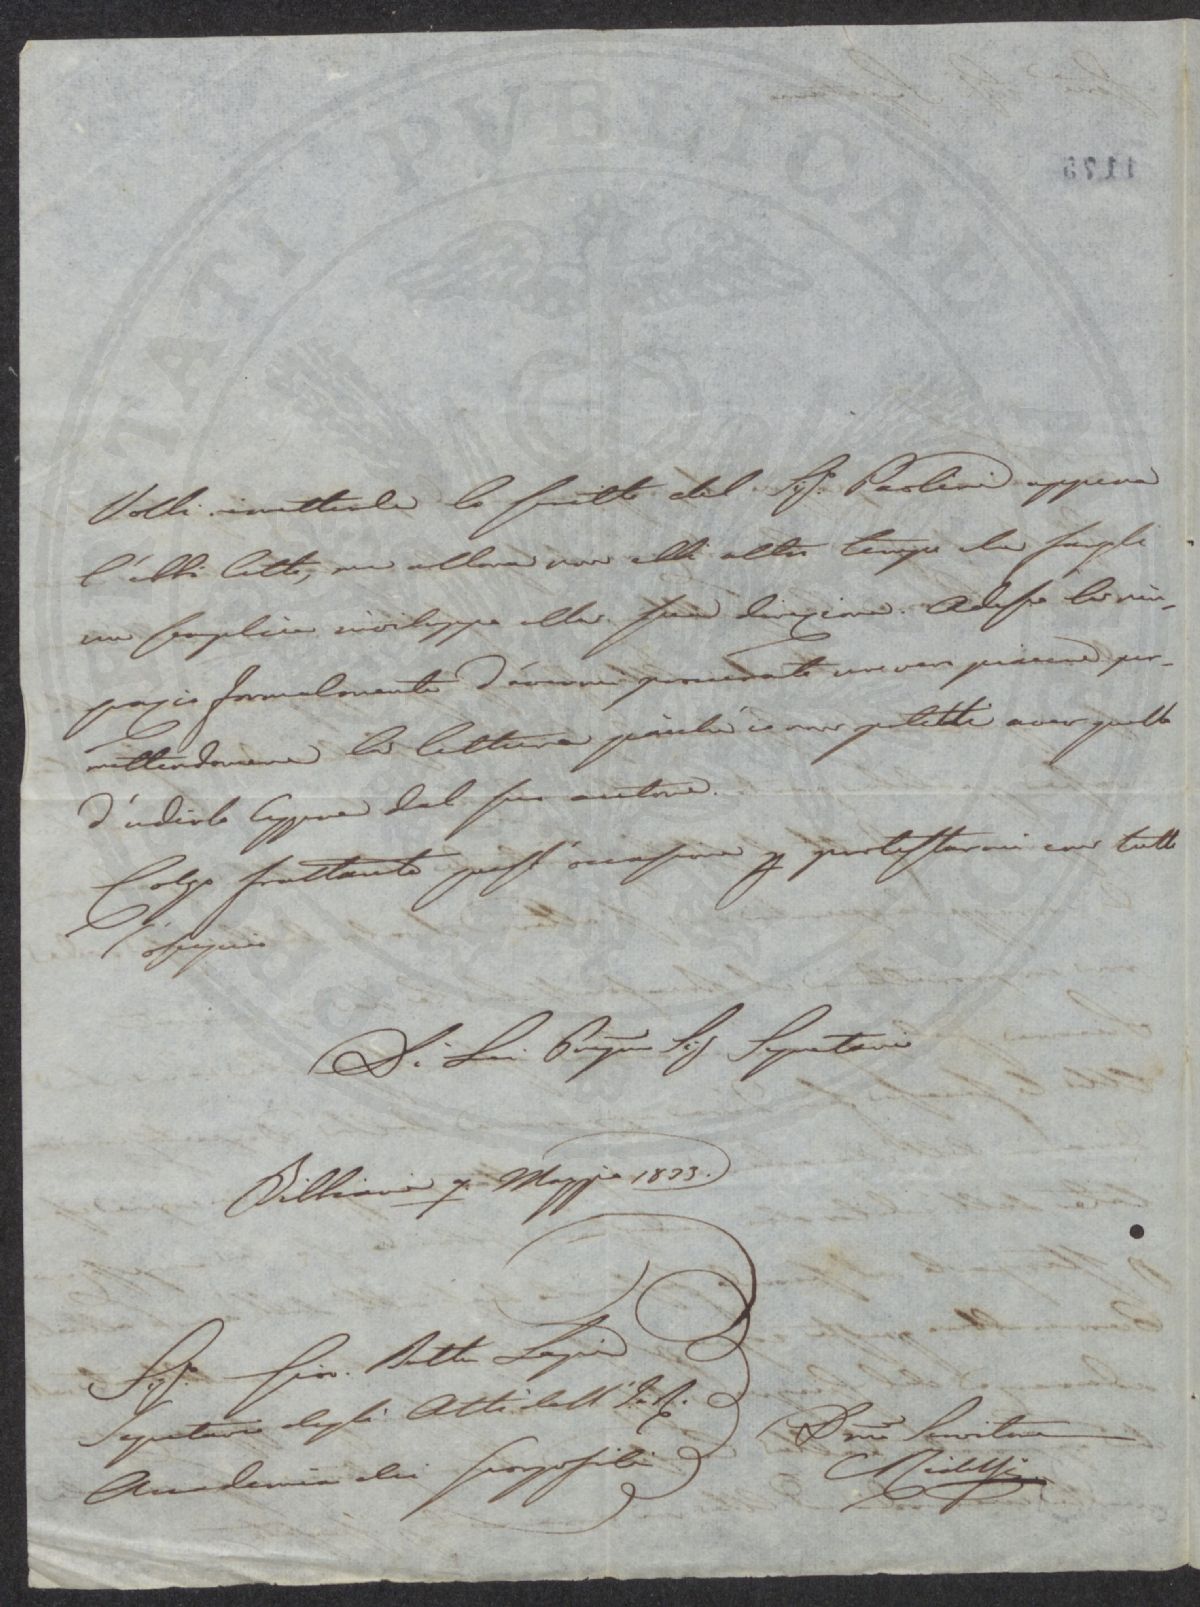 Volli rimetterle lo scritto del Sig.r Paolini appena
l'ebbi letto, ma allora non ebbi altro tempo che fargli
un semplice inviluppo colla sua direzione. Adesso la rin-
grazio formalmente d'avermi procurato un vero piacere per-
mettendomene la lettura giacchè io non potetti aver quello
d'udirlo leggere dal suo autore.
Colgo frattanto quest'occasione p protestarmi con tutto
l'ossequio
Di Lei Sig Segretario
7. Maggio 1833.
Sig.r Gio. Batta
Segretario degli Atti dell'I. e R.
Accademia dei Georgofili
Dmo Servitore
Ridolfi
1175
PVBLICAE